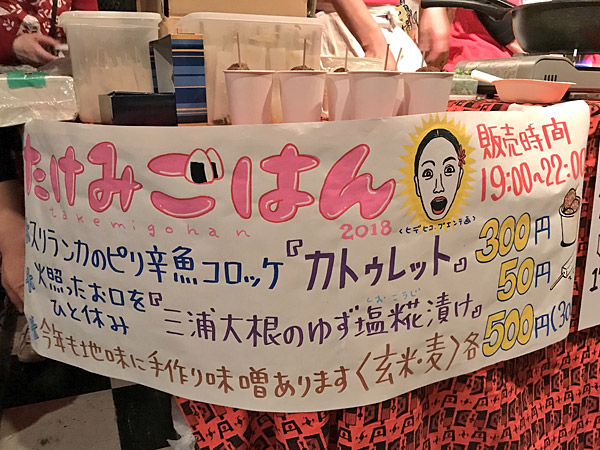 たけみごはん
takemigohan
2018
販売時間
19:00~22:00
スリランカのピリ辛魚コロッケ『カトゥレット』300円
火照ったお口を
ひと休み
『三浦大根のゆず塩糀漬け』50円
しおこうじ
今年も地味に手作り味噌あります〈玄米・麦〉各500円(30